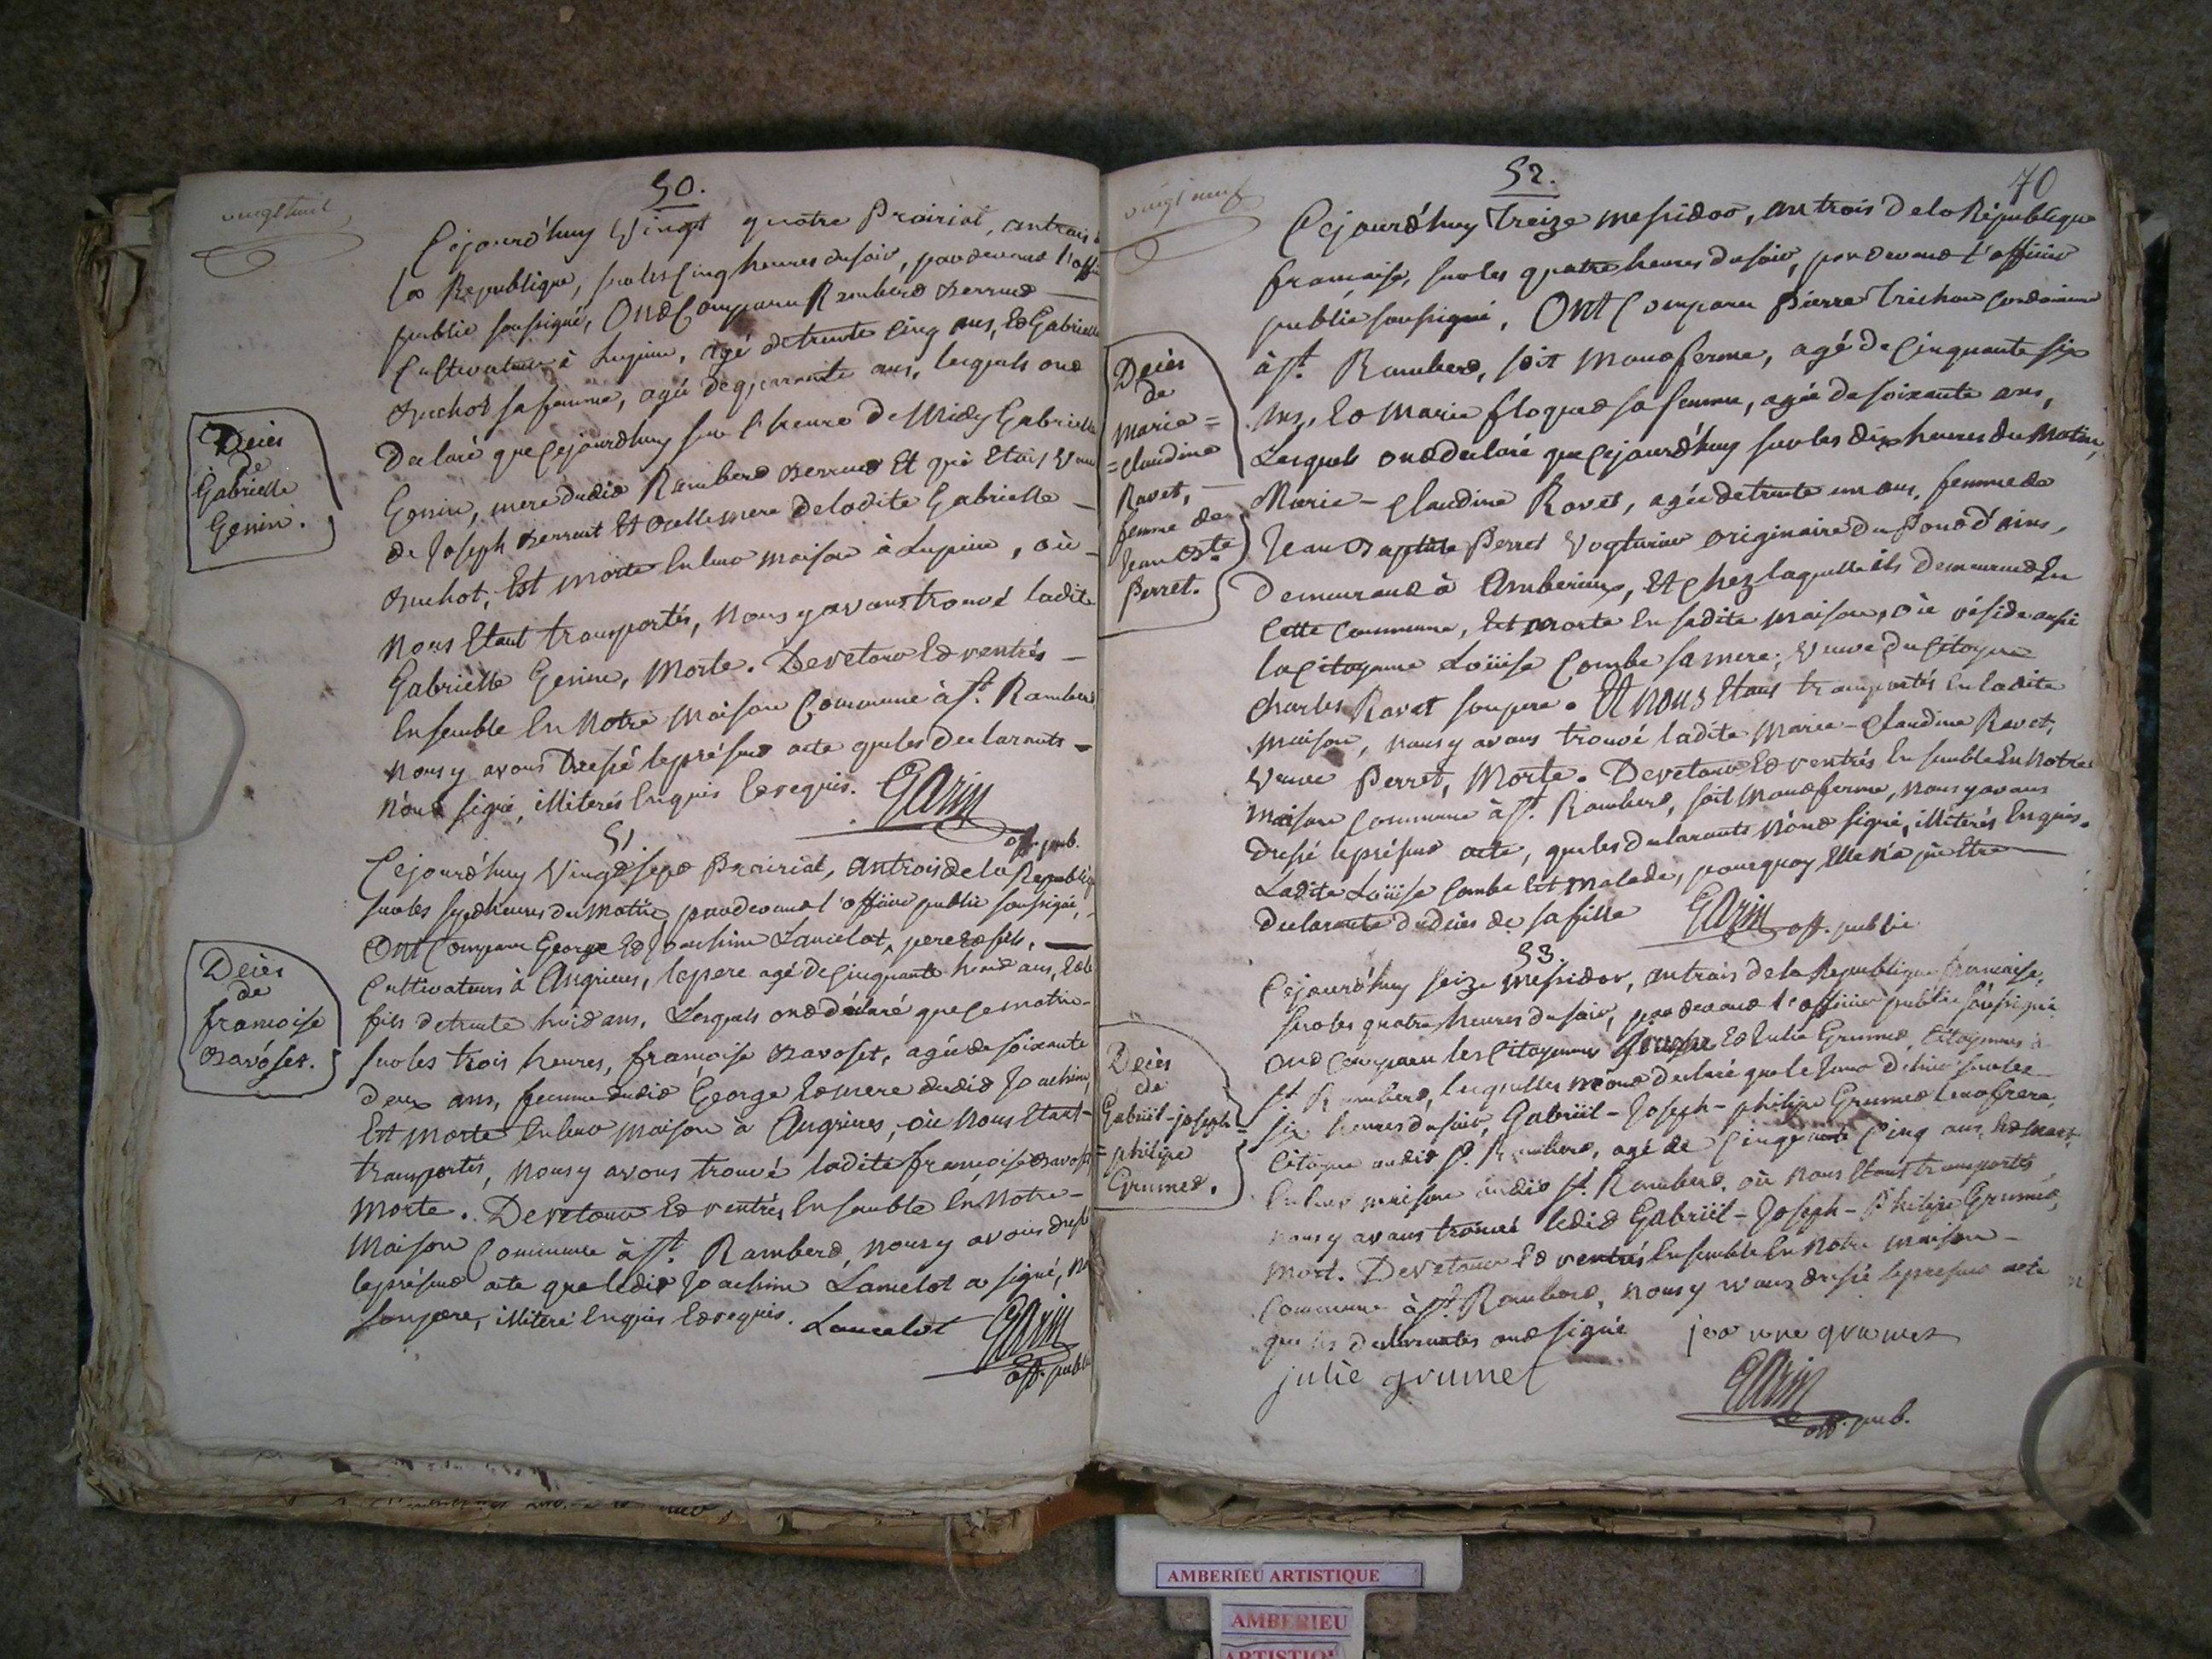 vingt huit
50.
Cejourd'huy Vingt quatre Prairial, an trois
la Republique, sur les Cinq heures du soir, pardevant l'offi
public soussigné, Ont Comparu Ramberd
Cultivateur à Lupieu, agé de trente Cinq ans, Et Gabrielle
Buchot sa femme, agée de quarante ans, lesquels ont
Declaré que Cejourdhuy sur l'heure de Midy Gabrielle
Genin, mere dudit Ramberd Et qui Etait
de Joseph Et Belle mere de ladite Gabrielle
Buchot, Est morte En leur maison à Lupieu, où
Nous Etant transportés, Nous y avons trouvé ladite
Gabrielle Genin, Morte. De retour Et rentrés
Ensemble En Notre Maison Commune à St. Ramberd
Nous y avons Dressé le présent acte que les declarants
N'ont signé, illiterés Enquis Et requis. Garin
off. pub.
Decès
de
Gabrielle
Genin.
51
Cejourd'huy Vingt sept Prairial, an trois de la Republiq
sur les sept heures du Matin, pardevant l'officier public soussigné,
Ont Comparu George Et Joachim Lancelot, pere et fils,
Cultivateurs à Angrieres, le pere agé de Cinquante huit ans, Et le
fils de trente huit ans. Lesquels ont déclaré que Ce matin
sur les trois heures, francoise Savoset, agée de soixante
deux ans, femme dudit George Et mere dudit Joachim
Est morte En leur maison à Angrieres, où Nous Etant
transportés, Nous y avons trouvé ladite francoise
Morte. De retour Et rentrés Ensemble En Notre
Maison Commune à St. Ramberd, Nous y avons dressé
le présent acte que ledit Joachim Lancelot a signé,
son pere, illiteré Enquis Et requis. Lancelot Garin
off. publi
Decès
de
francoise
Savoset.
vingt neuf
52.
70
Cejourd'huy Treize Messidor, an trois de la République
française, sur les quatre heures du soir, pardevant l'officier
public soussigné, Ont Comparu Pierre Trichon Cordonnier
à St. Ramberd, soit Montferme, agé de Cinquante six
ans, Et Marie floquet sa femme, agée de soixante ans,
Lesquels ont declaré que Cejourd'huy sur les dix heures du Matin,
Marie-Claudine Ravet, agée de trente un ans, femme de
Jean Baptiste Perret Vogturier originaire du Pont d'ains,
Demeurant à Amberieux, Et Chez laquelle ils Demeurent En
Cette Commune, Est morte En sadite maison, où réside aussi
la Citoyenne Loüise Combe sa mere, Veuve du Citoyen
Charles Ravet son pere. Et Nous Etans transportés En ladite
Maison, nous y avons trouvé ladite Marie-Claudine Ravet,
Veuve Perret, Morte. De retour Et rentrés Ensemble En Notre
Maison Commune à St. Ramberd, soit Montferme, Nous y avons
Dressé le présent acte, que les declarants N'ont signé, illiterés Enquis.
Ladite Loüise Combe Est Malade, pourquoy Elle N'a pû Etre
declarante du deces de sa fille Garin off. public
Decès
de
Marie=
=Claudine
Ravet,
femme de
Jean Bste
Perret.
53.
Cejourd'huy seize Messidor, an trois de la Republique francaise,
sur les quatre heures du soir, pardevant l'officier public soussigné
Ont Comparu les Citoyennes Et Julie Grumet, Citoyennes à
St. Ramberd, lesquelles m'ont declaré que le Jour d'hier sur les
six heures du soir, Gabriël-Joseph-philipe Grumet leur frere,
Citoyen audit St. Ramberd, agé de Cinquante Cinq ans, Est mort
En leur maison audit St. Ramberd, où nous Etans transportés
Nous y avons trouvé ledit Gabriël-Joseph-Philipe Grumet,
Mort. De retour Et rentrés Ensemble En Notre Maison
Commune à St. Ramberd, Nous y avons dressé le présent acte
que les declarantes ont signé jeanne grumet
julie grumet
Garin
off. pub.
Decès
de
Gabriël-joseph=
=philipe
Grumet.
AMBERIEU ARTISTIQUE
AMBERIEU
ARTISTIQ